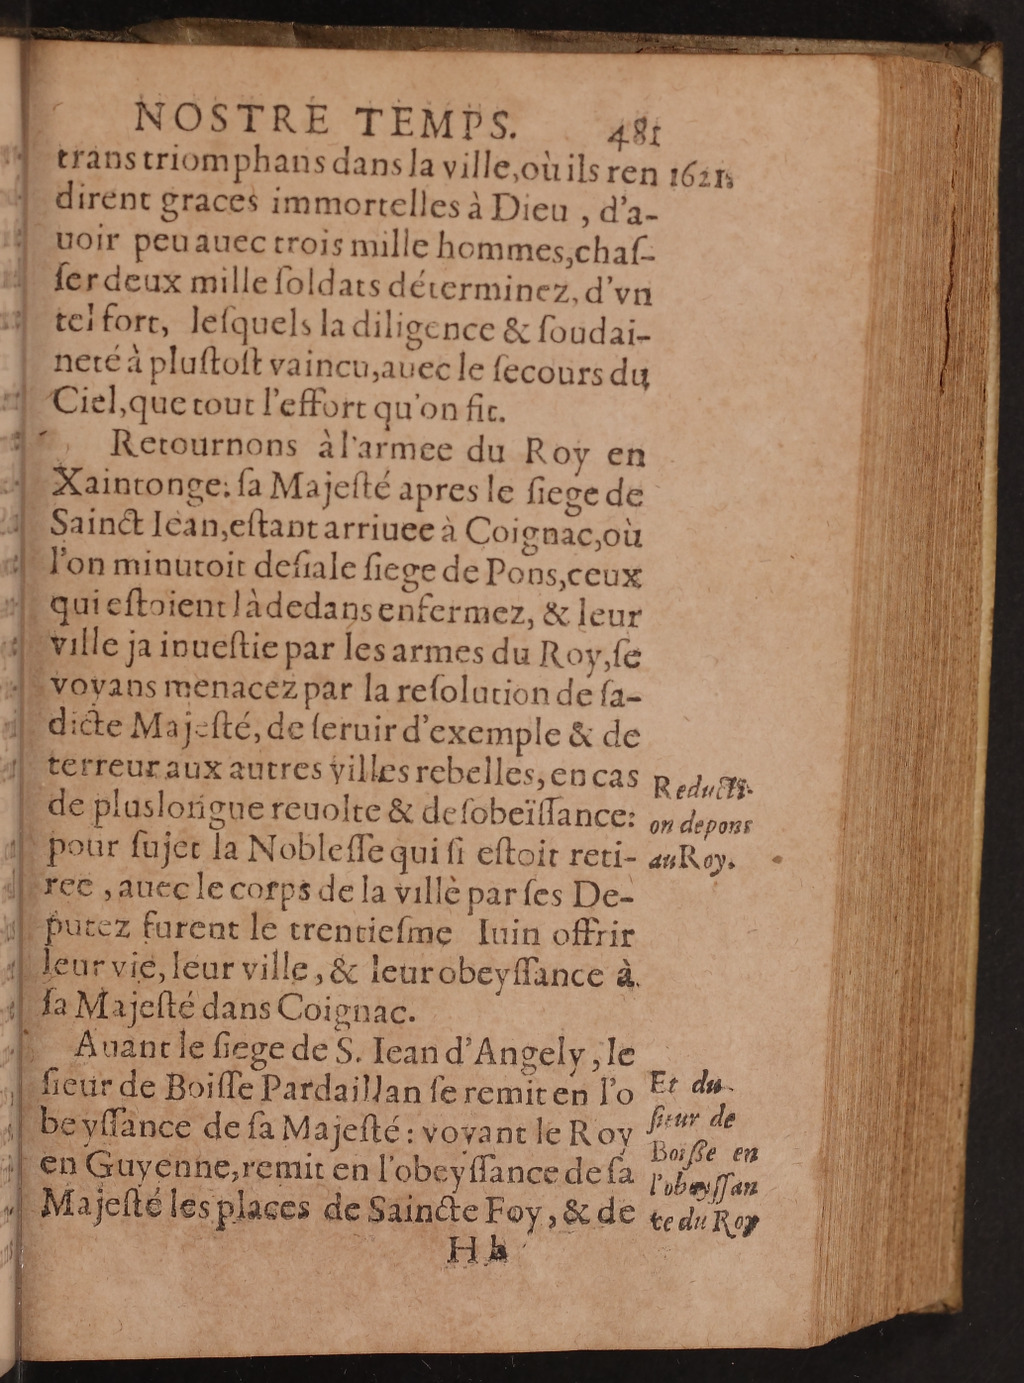 NOSTRE TEMPS. 481
trans triomphans dans la ville, où ils ren 1621.
dirent graces immortelles à Dieu , d'a-
uoir peu auec trois mille hommes, chaſ-
ſer deux mille ſoldats déterminez, d'vn
tel fort, leſquels la diligence & ſoudai-
neté à pluſtoſt vaincu, auec le ſecours du
Ciel, que tout l'effort qu'on fit.
Retournons à l'armee du Roy en
Xaintonge: ſa Majeſté apres le ſiege de
Sainct Iean, eſtant arriuee à Coignac, où
l'on minutoit deſia le ſiege de Pons, ceux
qui eſtoient là dedans enfermez, & leur
ville ja inueſtie par les armes du Roy, ſe
voyans menacez par la reſolution de ſa-
dicte Majeſté, de ſeruir d'exemple & de
terreur aux autres villes rebelles, en cas
de plus longue reuolte & deſobeïſſance:
pour ſujet la Nobleſſe qui ſi eſtoit reti-
ree , auec le corps de la ville par ſes De-
putez furent le trentieſme Iuin offrir
leur vie, leur ville , & leur obeyſſance à
ſa Majeſté dans Coignac.
Reducti-
on de pons
au Roy.
Auant le ſiege de S. Iean d'Angely , le
ſieur de Boiſſe Pardaillan ſe remit en l'o
beyſſance de ſa Majeſté : voyant le Roy
en Guyenne, remit en l'obeyſſance de ſa
Majeſté les places de Saincte Foy , & de
Et du
ſieur de
Boiſſe en
l'obeyſſan
ce du Roy
Hh